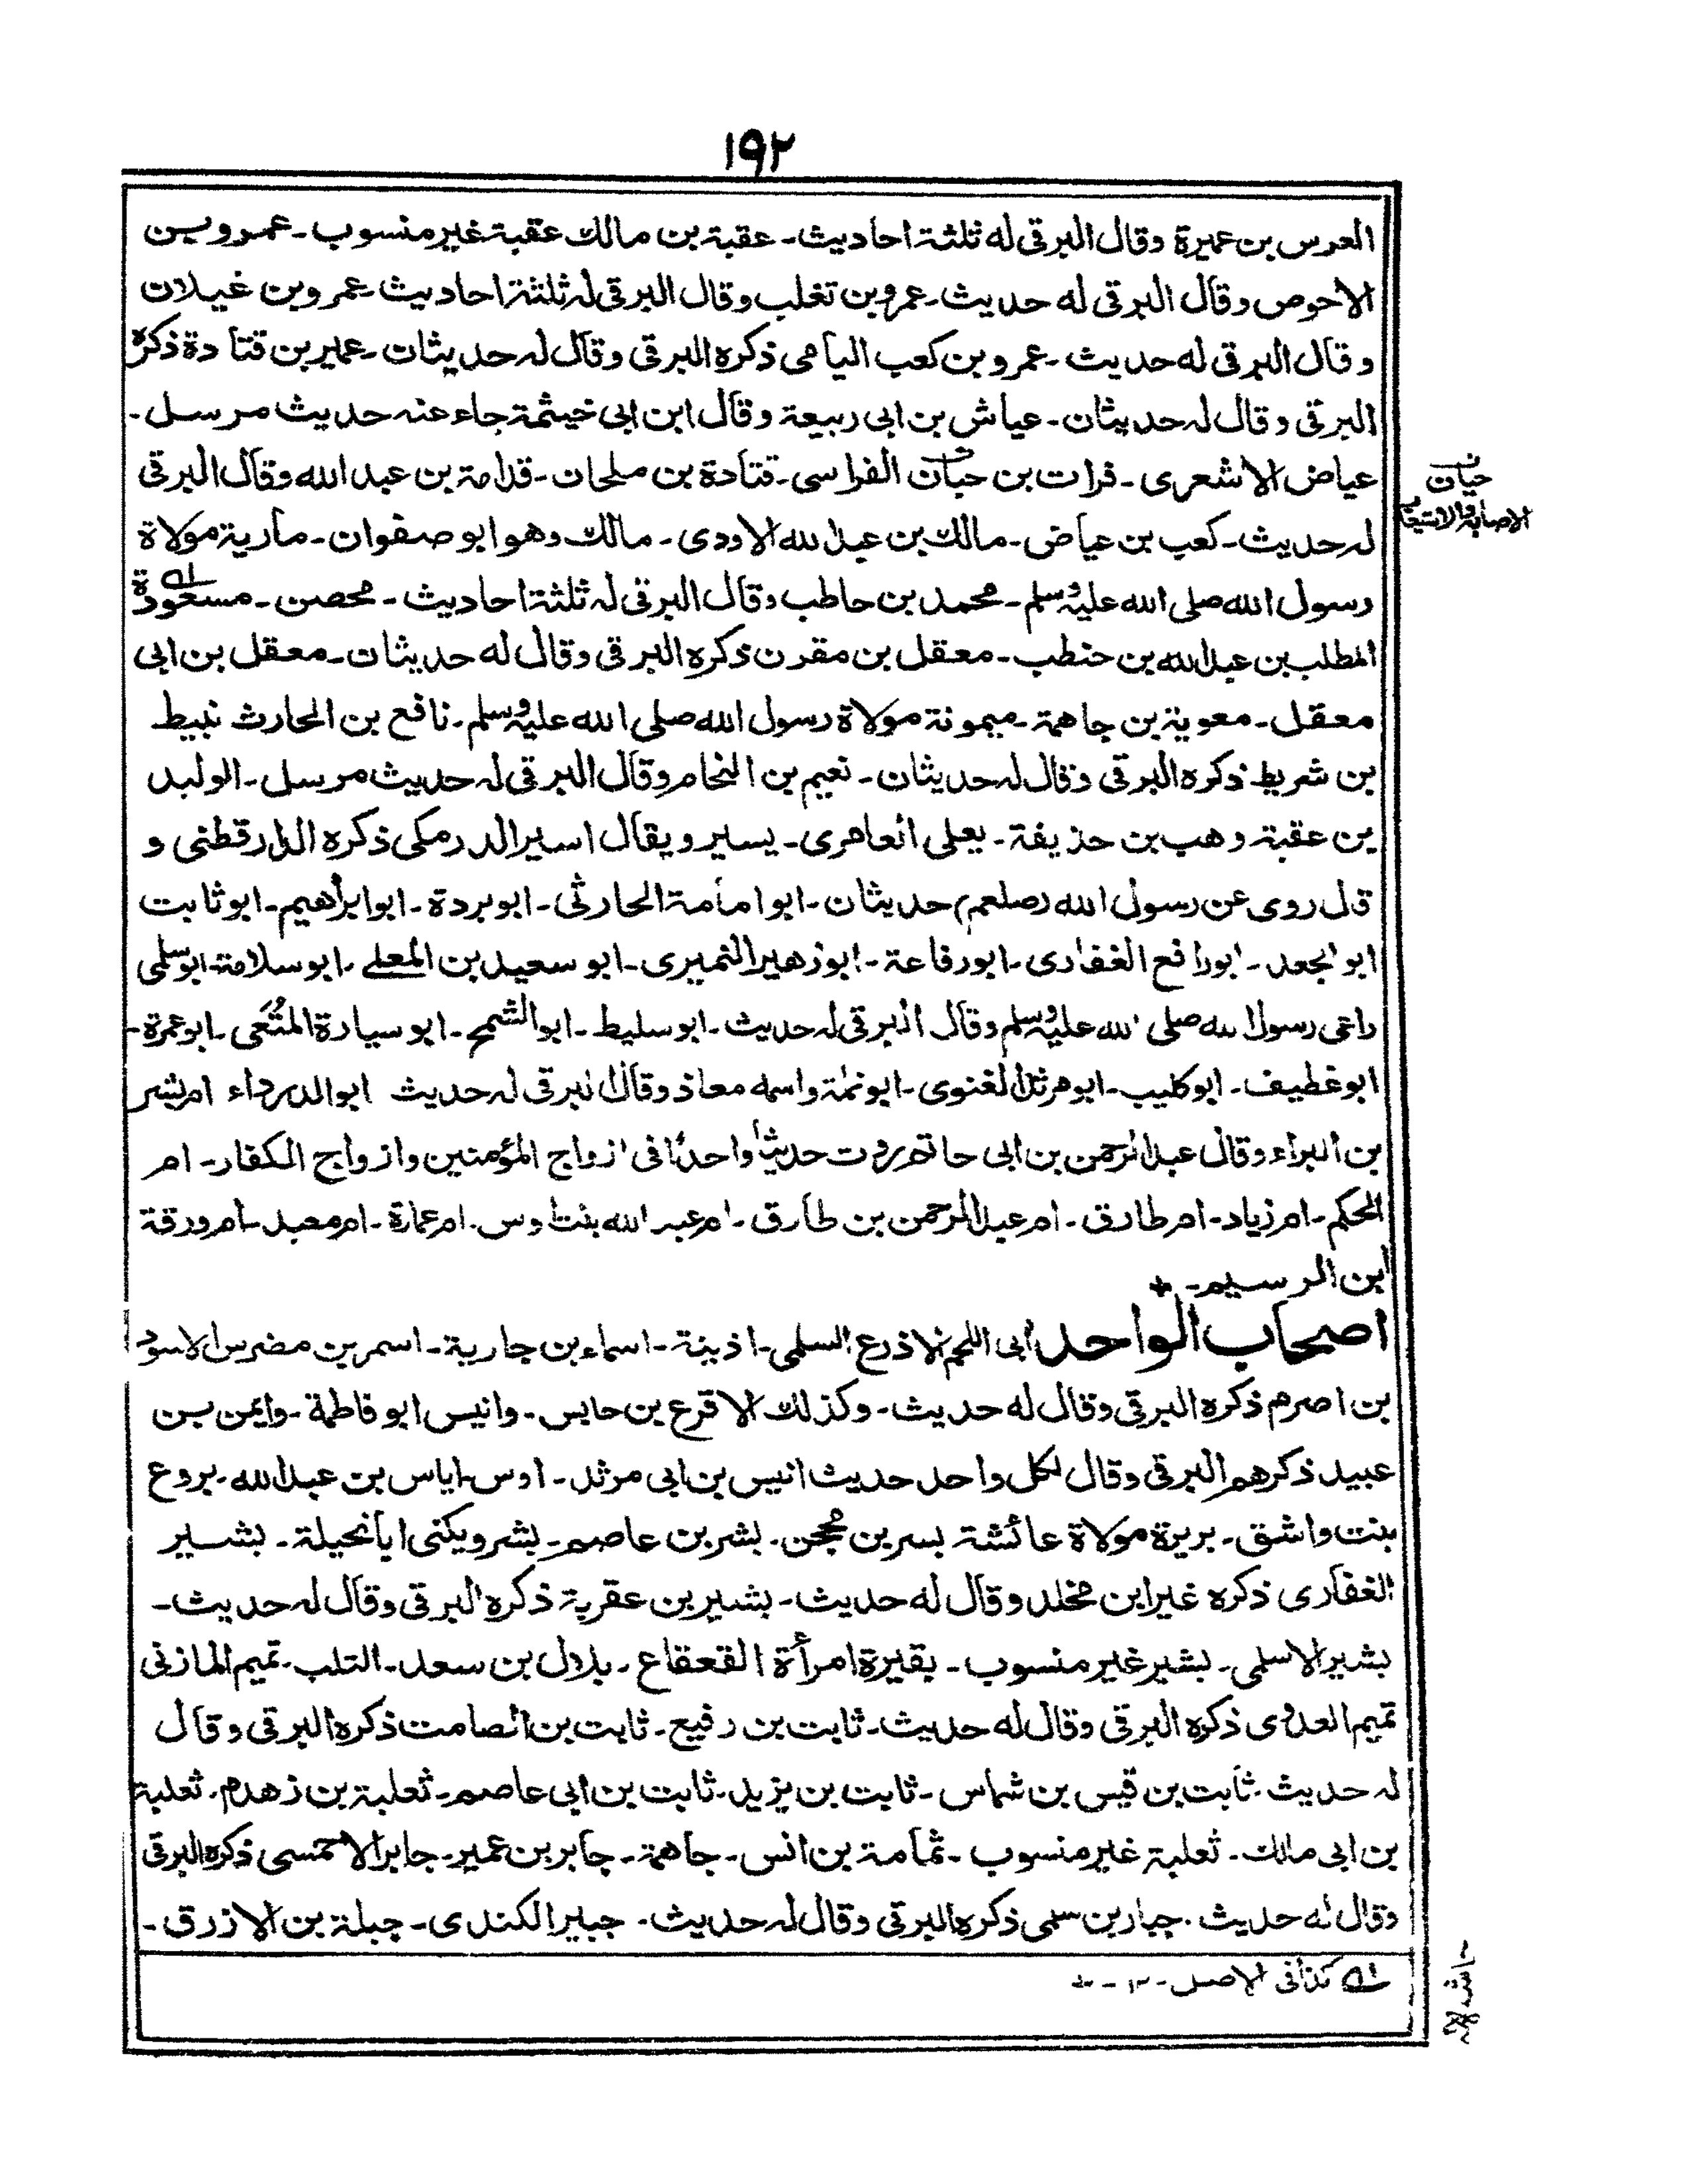 ١٩٢
العرس بن عميرة وقال البرقى له ثلثة احاديث۔ عقبة بن مالك عقبة غير منسوب۔ عمرو بن
الاحوص وقال البرقى له حديث۔ عمرو بن تغلب وقال البرقى له ثلثة احاديث۔ عمرو بن غيلان
وقال البرقى له حديث۔ عمرو بن كعب اليامى ذكره البرقى وقال له حديثان۔ عمير بن قتادة ذكره
البرقى وقال له حديثان۔ عياش بن ابى ربيعة وقال ابن ابى خيثمة جاء عنه حديث مرسل۔
عياض الاشعرى۔ فرات بن حبان الفراسى۔ قتادة بن ملحان۔ قدامة بن عبد الله وقال البرقى
حيان
الاصابة والاستيعاب
له حديث۔ كعب بن عياض۔ مالك بن عبد الله الاودى۔ مالك وهو ابو صفوان۔ مارية مولاة
رسول الله صلى الله عليه وسلم۔ محمد بن حاطب وقال البرقى له ثلثة احاديث۔ محصن۔ مسعودة
المطلب بن عبد الله بن حنطب۔ معقل بن مقرن ذكره البرقى وقال له حديثان۔ معقل بن ابى
معقل۔ معوية بن جاهمة۔ ميمونة مولاة رسول الله صلى الله عليه وسلم۔ نافع بن الحارث نبيط
بن شريط ذكره البرقى وقال له حديثان۔ نعيم بن النحام وقال البرقى له حديث مرسل۔ الوليد
بن عقبة وهب بن حذيفة۔ يعلى العامرى۔ يسير ويقال اسير الدرمكى ذكره الدارقطنى و
قال روى عن رسول الله (صلعم) حديثان۔ ابو امامة الحارثى۔ ابو بردة۔ ابو ابراهيم۔ ابو ثابت
ابو الجعد۔ ابو رافع الغفارى۔ ابو رفاعة۔ ابو زهير النميرى۔ ابو سعيد بن المعلے۔ ابو سلامة۔ ابو سلمى
راعى رسول الله صلى الله عليه وسلم وقال البرقى له حديث۔ ابو سليط۔ ابو الشمح۔ ابو سيارة المتعى۔ ابو عمرة۔
ابو غطيف۔ ابو كليب۔ ابو مرثد الغنوى۔ ابو نملة واسمه معاذ وقال البرقى له حديث ابو الدرداء ام بشر
بن البراء وقال عبد الرحمن بن ابى حاتم روت حديثا واحدا فى ازواج المؤمنين وازواج الكفار۔ ام
الحكم۔ ام زياد۔ ام طارق۔ ام عبد الرحمن بن طارق۔ ام عبد الله بنت اوس۔ ام عمارة۔ ام معبد۔ ام ورقة
ابن الرسيم۔
اصحاب الواحد ابى اللحم الاذرع السلمى۔ اذينة۔ اسماء بن جارية۔ اسمر بن مضرس الاسود
بن اصرم ذكره البرقى وقال له حديث۔ وكذلك الاقرع بن حابس۔ وانيس ابو فاطمة۔ وايمن بن
عبيد ذكرهم البرقى وقال لكل واحد حديث انيس بن ابى مرثد۔ اوس۔ اياس بن عبد الله۔ بروع
بنت واشق۔ بريرة مولاة عائشة بسر بن محجن۔ بشر بن عاصم۔ بشر ويكنى ابا نحيلة۔ بشير
الغفارى ذكره غير ابن مخلد وقال له حديث۔ بشير بن عقربة ذكره البرقى وقال له حديث۔
بشير الاسلمى۔ بشير غير منسوب۔ بقيرة امرأة القعقاع۔ بلال بن سعد۔ التلب۔ تميم المازنى
تميم العدوى ذكره البرقى وقال له حديث۔ ثابت بن رفيع۔ ثابت بن الصامت ذكره البرقى وقال
له حديث۔ ثابت بن قيس بن شماس۔ ثابت بن يزيد۔ ثابت بن ابى عاصم۔ ثعلبة بن زهدم۔ ثعلبة
بن ابى مالك۔ ثعلبة غير منسوب۔ ثمامة بن انس۔ جاهمة۔ جابر بن عمير۔ جابر الاحمسى ذكره البرقى
وقال له حديث۔ جبار بن سلمى ذكره البرقى وقال له حديث۔ جبير الكندى۔ جبلة بن الازرق۔
له كذا فى الاصل۔ ١٢